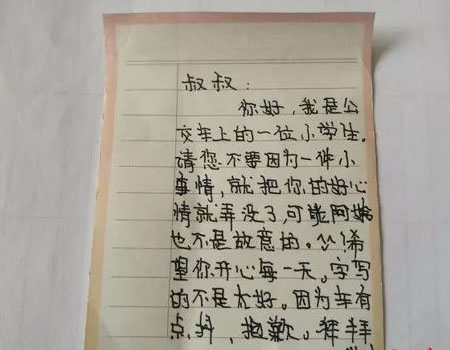 叔叔：
你好，我是公
交车上的一位小学生。
请您不要因为一件小
事情，就把你的好心
情就弄没了，可能阿姨
也不是故意的。^^希
望你开心每一天。字写
的不是太好。因为车有
点抖，抱歉。